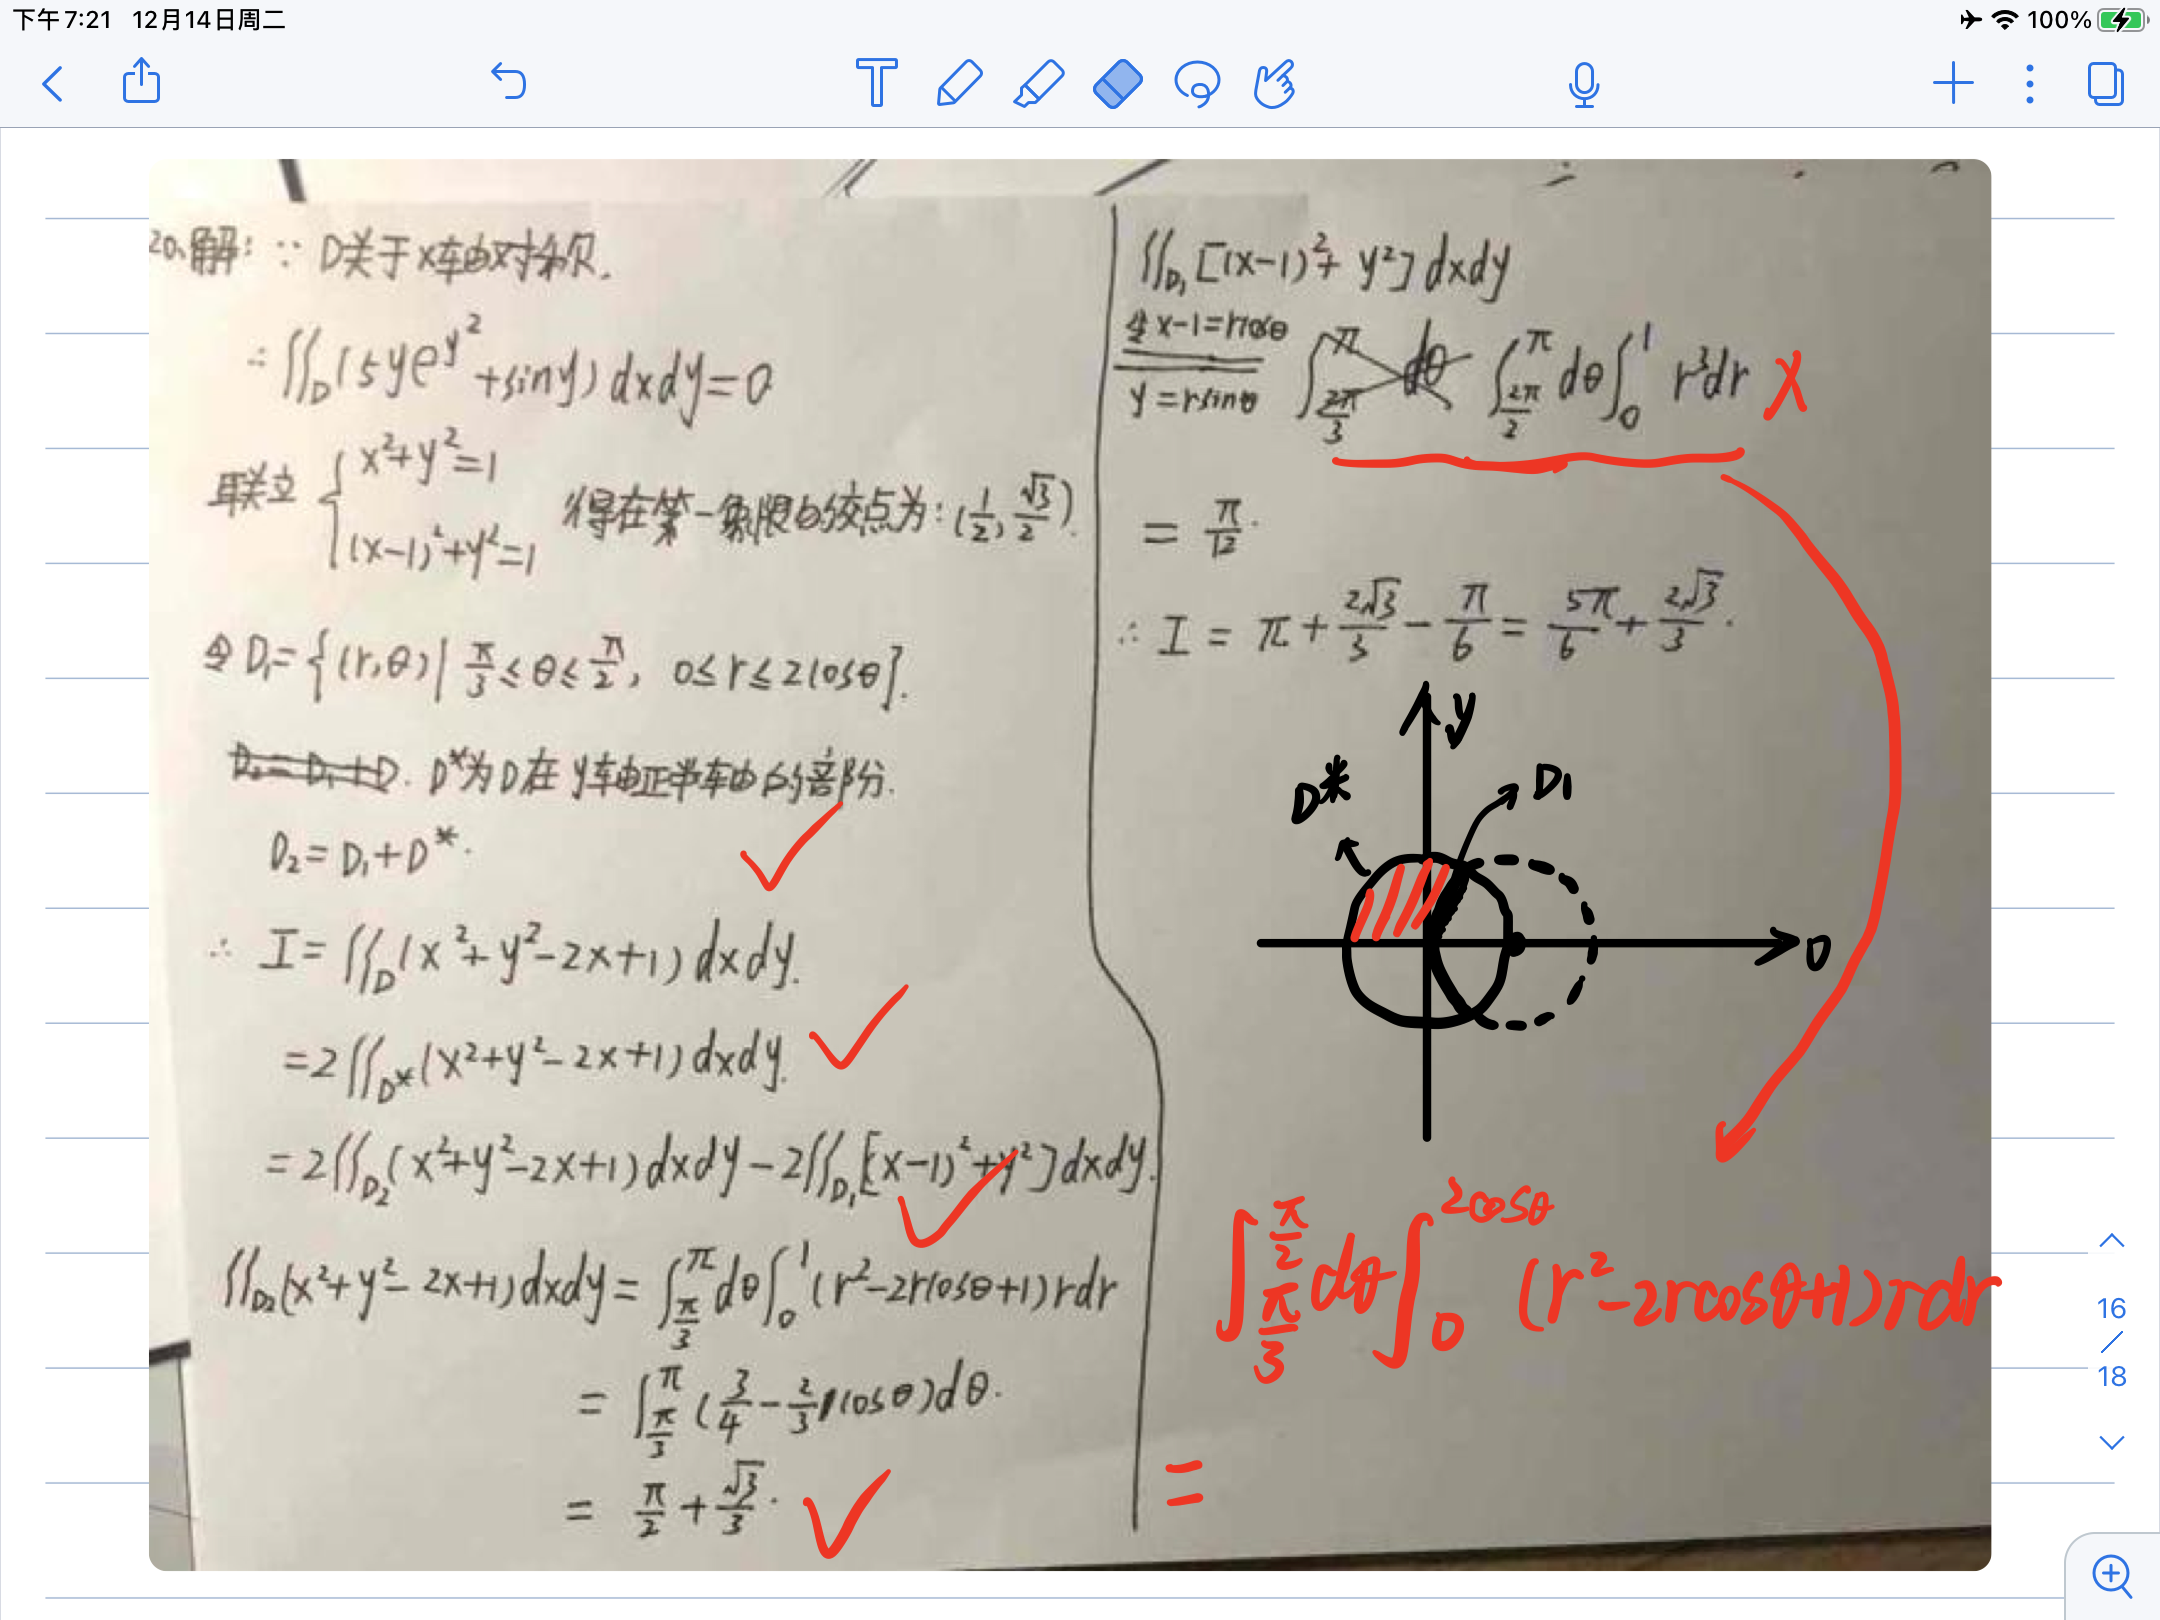 下午7:21 12月14日周二
100%
20、解: ∵ D关于x轴对称.
∴ ∬_D (5ye^{y^2}+siny) dxdy=0
联立 { x²+y²=1
(x-1)²+y²=1
得在第一象限的交点为: (1/2, √3/2).
令 D₁={(r,θ)| π/3 ≤ θ ≤ π/2, 0≤ r ≤ 2cosθ}.
D₂=D₁+D. D*为D在y轴正半轴的部分.
D₂=D₁+D*.
∴ I=∬_D (x²+y²-2x+1) dxdy.
=2∬_{D*} (x²+y²-2x+1) dxdy.
=2∬_{D₂} (x²+y²-2x+1) dxdy - 2∬_{D₁} [(x-1)²+y²] dxdy.
∬_{D₂} (x²+y²-2x+1) dxdy = ∫_{π/3}^{π} dθ ∫_0^1 (r²-2rcosθ+1) rdr
= ∫_{π/3}^{π} (3/4 - 2/3 cosθ) dθ.
= π/2 + √3/3.
∬_{D₁} [(x-1)²+y²] dxdy
令x-1=rcosθ
y=rsinθ
∫_{2π/3}^{π} dθ ∫_{2π/2}^{π} dθ ∫_0^1 r³dr X
= π/12.
∴ I = π + 2√3/3 - π/6 = 5π/6 + 2√3/3.
y
D*
D₁
0
∫_{π/3}^{π/2} dθ ∫_0^{2cosθ} (r²-2rcosθ+1) rdr
=
16
/
18